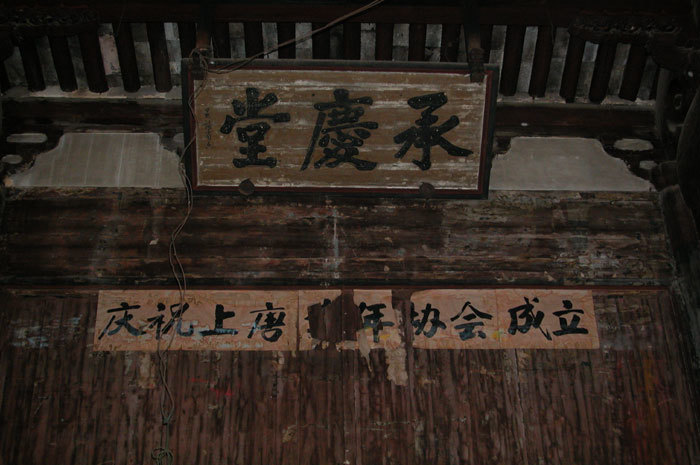 承慶堂
庆祝上唐年协会成立